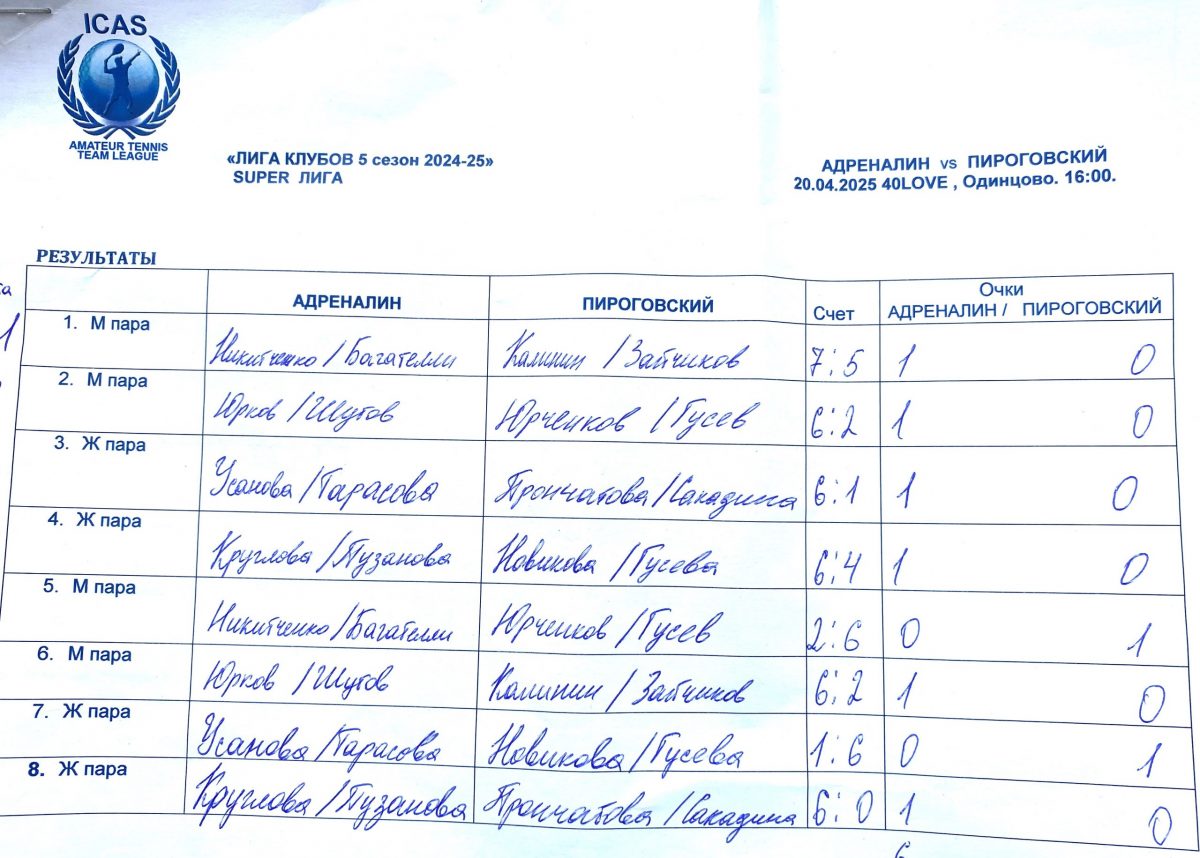 ICAS
AMATEUR TENNIS
TEAM LEAGUE
«ЛИГА КЛУБОВ 5 сезон 2024-25»
SUPER ЛИГА
АДРЕНАЛИН vs ПИРОГОВСКИЙ
20.04.2025 40LOVE , Одинцово. 16:00.
РЕЗУЛЬТАТЫ
АДРЕНАЛИН ПИРОГОВСКИЙ Счет Очки АДРЕНАЛИН / ПИРОГОВСКИЙ
1. М пара Никитченко / Багателли Калинин / Зайчиков 7:5 1 0
2. М пара Юрков / Шутов Юрченков / Гусев 6:2 1 0
3. Ж пара Усанова / Тарасова Прончатова / Сакадина 6:1 1 0
4. Ж пара Круглова / Пузанова Новикова / Гусева 6:4 1 0
5. М пара Никитченко / Багателли Юрченков / Гусев 2:6 0 1
6. М пара Юрков / Шутов Калинин / Зайчиков 6:2 1 0
7. Ж пара Усанова / Тарасова Новикова / Гусева 1:6 0 1
8. Ж пара Круглова / Пузанова Прончатова / Сакадина 6:0 1 0